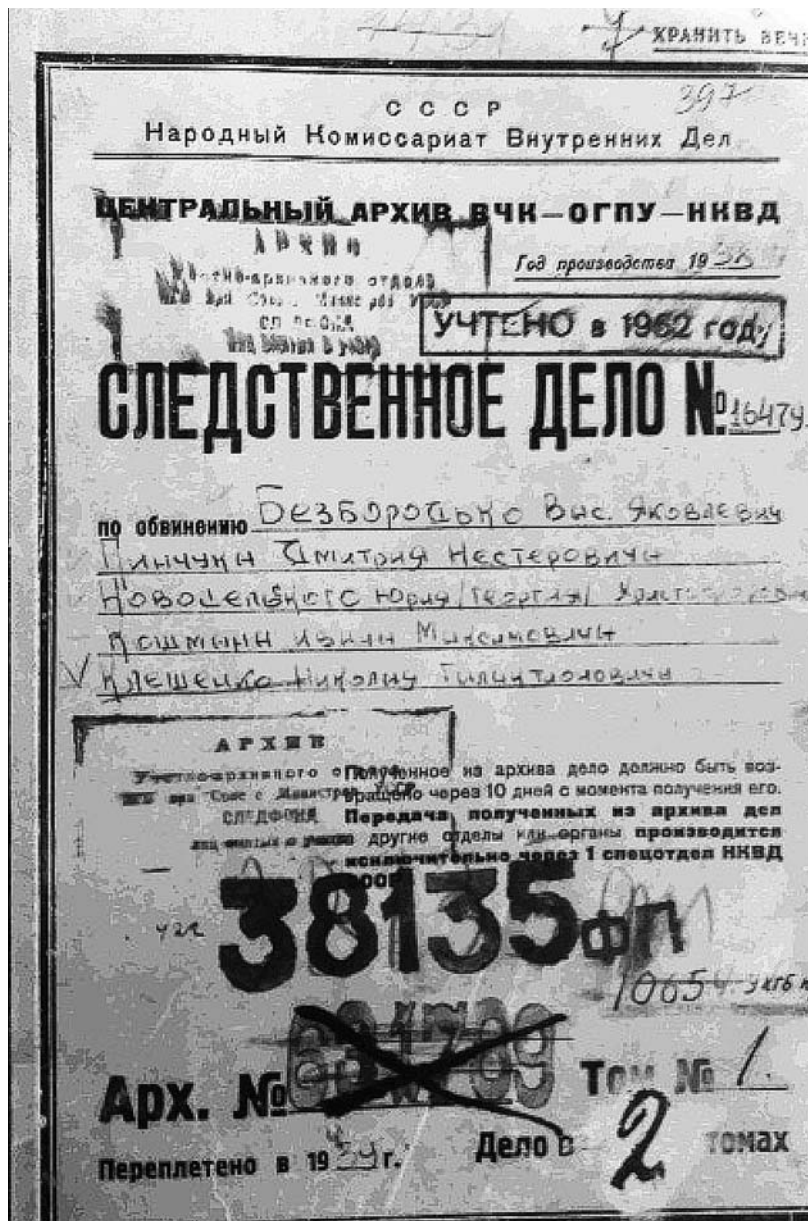 ХРАНИТЬ ВЕЧ
397
СССР
Народный Комиссариат Внутренних Дел
ЦЕНТРАЛЬНЫЙ АРХИВ ВЧК—ОГПУ—НКВД
АРХИВ
Учетно-архивного отдела
Год производства 1938
УЧТЕНО в 1962 году
СЛЕДСТВЕННОЕ ДЕЛО №16479
по обвинению Безбородько Вас. Яковлевич
Пинчука Дмитрия Нестеровича
Новосельского Юрия /Георгия/
Кошмана Ивана Максимовича
V Клещенко Николая
АРХИВ
Учетно-архивного отдела
СЛЕДФОНД
Полученное из архива дело должно быть воз-
вращено через 10 дней с момента получения его.
Передача полученных из архива дел
другие отделы или органы производится
исключительно через 1 спецотдел НКВД
СССР
38135 ФП
10654 УКГБ
Арх. №
Том № 1.
Переплетено в 1939 г.
Дело в 2 томах